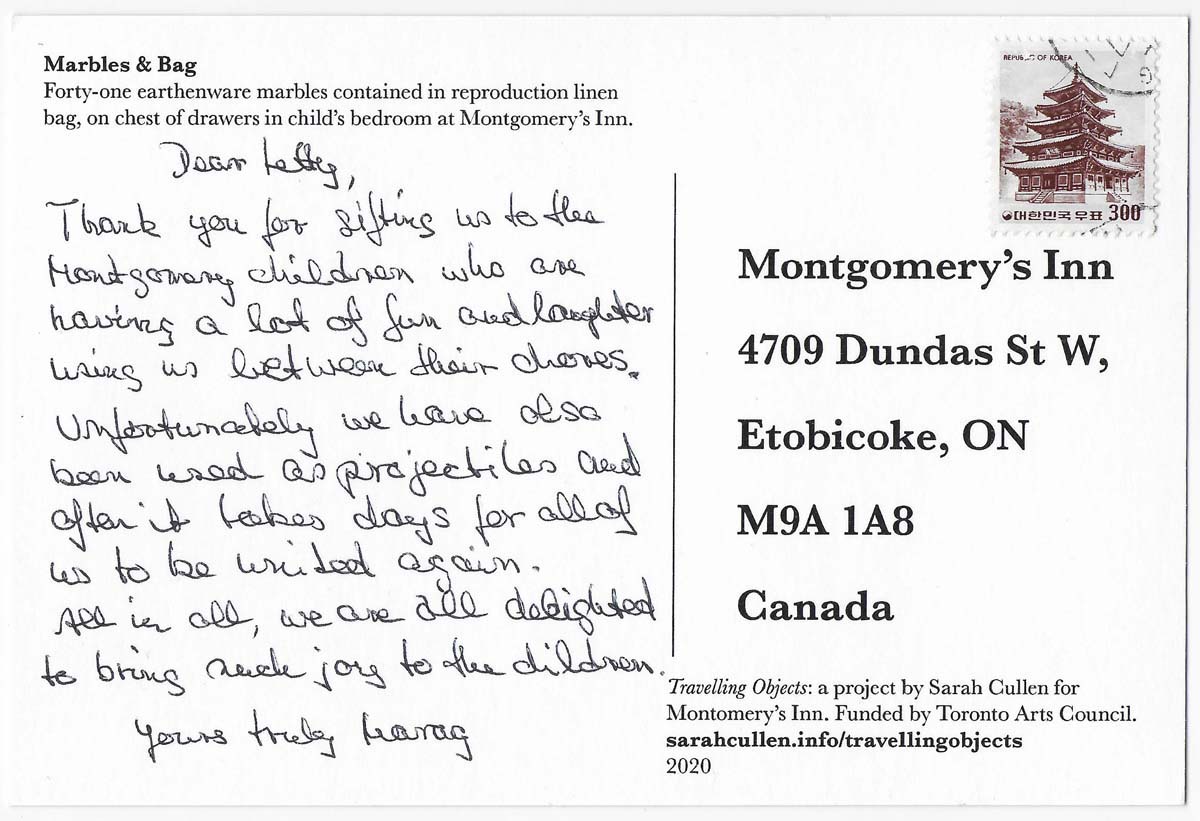 Marbles & Bag
Forty-one earthenware marbles contained in reproduction linen
bag, on chest of drawers in child's bedroom at Montgomery's Inn.
Dear Letty,
Thank you for gifting us to the
Montgomery children who are
having a lot of fun and laughter
using us between their chores.
Unfortunately we have also
been used as projectiles and
after it takes days for all of
us to be united again.
All in all, we are all delighted
to bring such joy to the children.
Yours truly
REPUBLIC OF KOREA
대한민국우표 300
Montgomery's Inn
4709 Dundas St W,
Etobicoke, ON
M9A 1A8
Canada
Travelling Objects: a project by Sarah Cullen for
Montomery's Inn. Funded by Toronto Arts Council.
sarahcullen.info/travellingobjects
2020